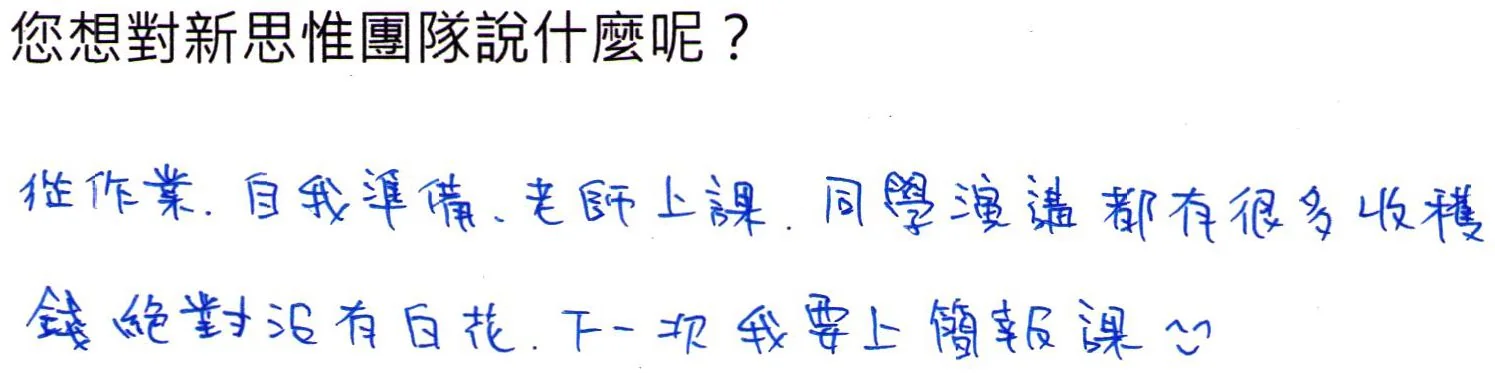 您想對新思惟團隊說什麼呢？
從作業、自我準備、老師上課、同學演講都有很多收穫
錢絕對沒有白花、下一次我要上簡報課